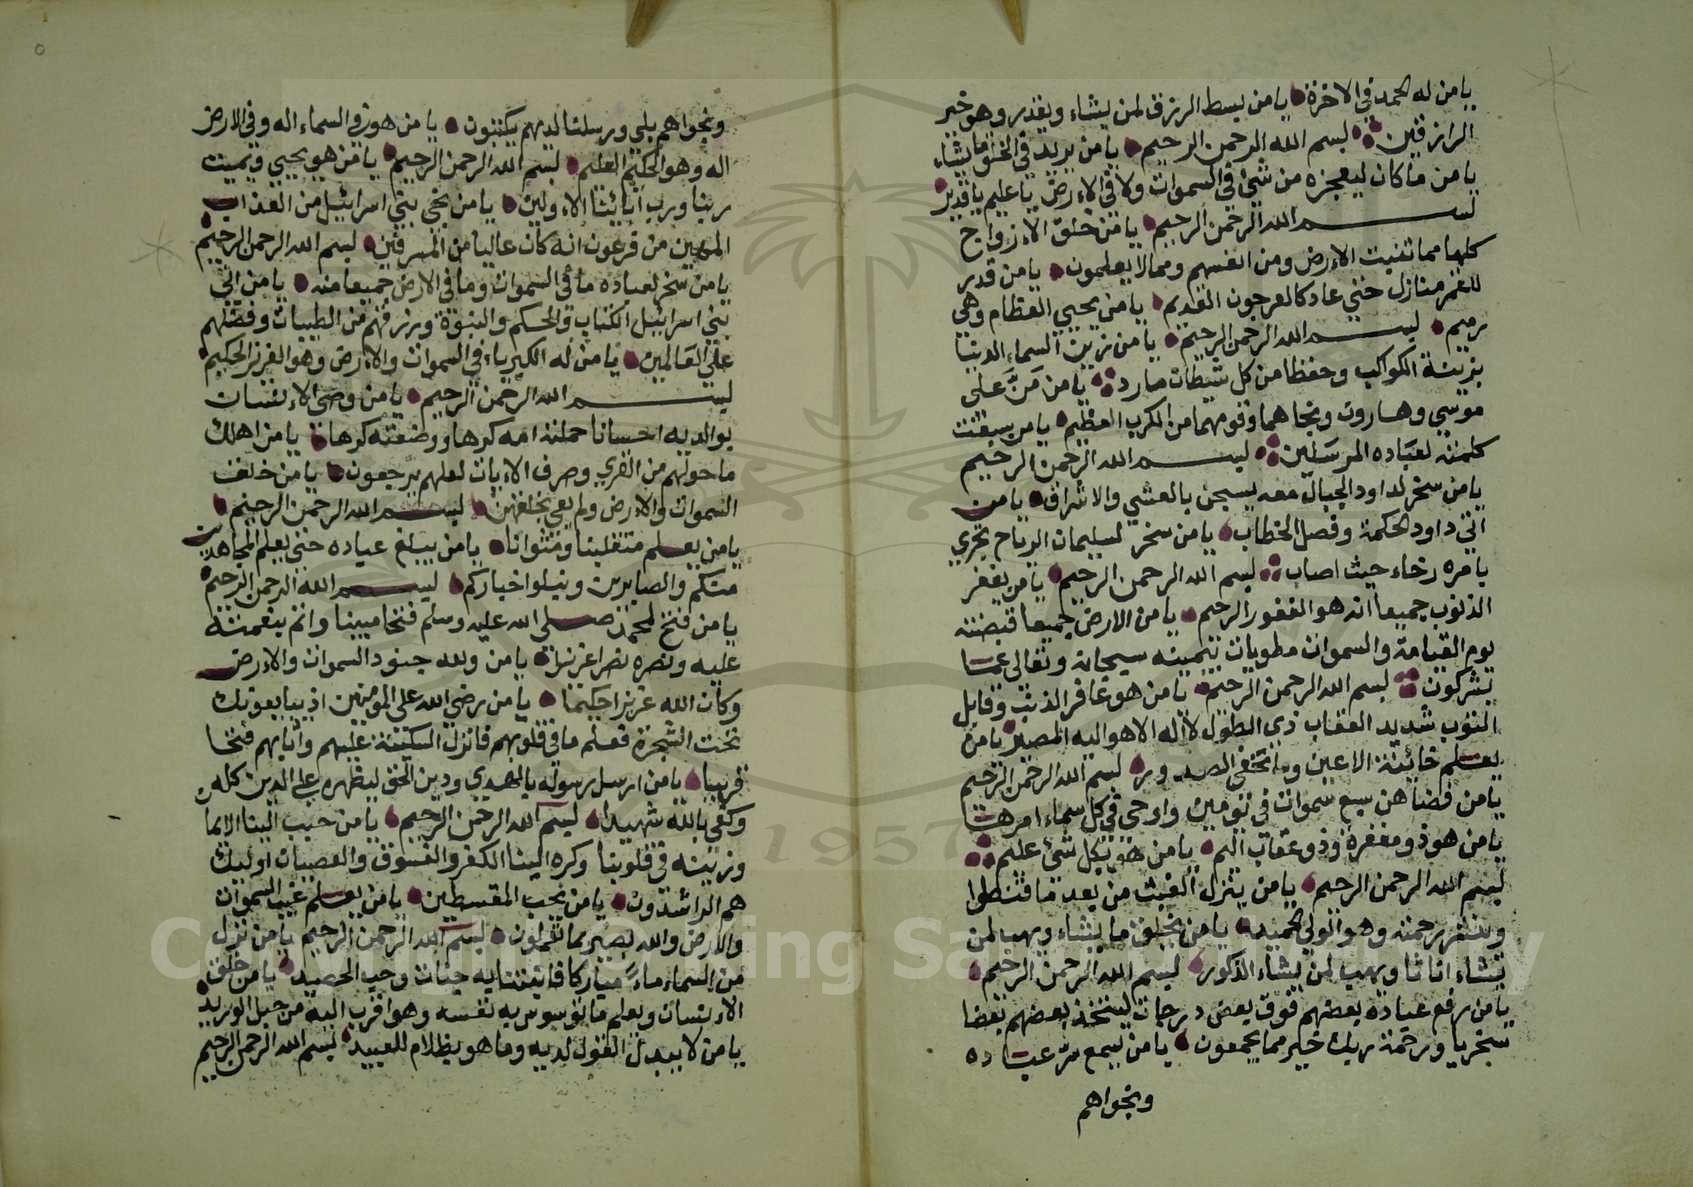 يا من له الحمد في الاخرة يا من يبسط الرزق لمن يشاء ويقدر وهو خير
الرازقين بسم الله الرحمن الرحيم يا من يزيد في الخلق ما يشاء
يا من ما كان ليعجزه من شئ في السموات ولا في الارض يا عليم يا قدير
بسم الله الرحمن الرحيم يا من خلق الازواج
كلها مما تنبت الارض ومن انفسهم ومما لا يعلمون يا من قدر
للقمر منازل حتي عاد كالعرجون القديم يا من يحيي العظام وهي
رميم بسم الله الرحمن الرحيم يا من زين السماء الدنيا
بزينة الكواكب وحفظا من كل شيطان مارد يا من من على
موسي وهارون ونجاهما وقومهما من الكرب العظيم يا من سبقت
كلمته لعباده المرسلين بسم الله الرحمن الرحيم
يا من سخر لداود الجبال معه يسبحن بالعشي والاشراق يا من
اتي داود الحكمة وفصل الخطاب يا من سخر لسليمان الرياح تجري
بامره رخاء حيث اصاب بسم الله الرحمن الرحيم يا من يغفر
الذنوب جميعا انه هو الغفور الرحيم يا من الارض جميعا قبضته
يوم القيامة والسموات مطويات بيمينه سبحانه وتعالى عما
يشركون بسم الله الرحمن الرحيم يا من هو غافر الذنب وقابل
التوب شديد العقاب ذي الطول لا اله الا هو اليه المصير يا من
يعلم خائنة الاعين وما تخفي الصدور بسم الله الرحمن الرحيم
يا من قضاهن سبع سموات في يومين واوحى في كل سماء امرها
يا من هو ذو مغفرة وذو عقاب اليم يا من هو بكل شئ عليم
بسم الله الرحمن الرحيم يا من ينزل الغيث من بعد ما قنطوا
وينشر رحمته وهو الولي الحميد يا من يخلق ما يشاء ويهب لمن
يشاء اناثا ويهب لمن يشاء الذكور بسم الله الرحمن الرحيم
يا من رفع عباده بعضهم فوق بعض درجات ليتخذ بعضهم بعضا
سخريا ورحمة ربك خير مما يجمعون يا من يسمع سر عباده
ونجواهم
ونجواهم بلي ورسلنا لديهم يكتبون يا من هو في السماء اله وفي الارض
اله وهو الحكيم العليم بسم الله الرحمن الرحيم يا من هو يحيي ويميت
ربنا ورب آبائنا الاولين يا من نجي بني اسرائيل من العذاب
المهين من فرعون انه كان عاليا من المسرفين بسم الله الرحمن الرحيم
يا من سخر لعباده ما في السموات وما في الارض جميعا منه يا من اتي
بني اسرائيل الكتاب والحكم والنبوة ورزقهم من الطيبات وفضلهم
على العالمين يا من له الكبرياء في السموات والارض وهو العزيز الحكيم
بسم الله الرحمن الرحيم يا من وصى الانسان
بوالديه احسانا حملته امه كرها ووضعته كرها يا من اهلك
ما حولهم من القري وصرف الايات لعلهم يرجعون يا من خلق
السموات والارض ولم يعي بخلقهن بسم الله الرحمن الرحيم
يا من يعلم متقلبنا ومثوانا يا من يبلغ عباده حتى يعلم المجاهدين
منكم والصابرين ونبلوا اخباركم بسم الله الرحمن الرحيم
يا من فتح لمحمد صلى الله عليه وسلم فتحا مبينا واتم بنعمته
عليه ونصره نصرا عزيزا يا من ولله جنود السموات والارض
وكان الله عزيزا حكيما يا من رضي الله على المؤمنين اذ يبايعونك
تحت الشجرة فعلم ما في قلوبهم فانزل السكينة عليهم واثابهم فتحا
قريبا يا من ارسل رسوله بالهدي ودين الحق ليظهره على الدين كله
وكفي بالله شهيدا بسم الله الرحمن الرحيم يا من حبب الينا الايما
وزينه في قلوبنا وكره الينا الكفر والفسوق والعصيان اوليك
هم الراشدون يا من يحب المقسطين يا من يعلم غيب السموات
والارض والله بصير بما تعملون بسم الله الرحمن الرحيم يا من نزل
من السماء ماء مباركا فانبتنا به جنات وحب الحصيد يا من خلق
الانسان ويعلم ما توسوس به نفسه وهو اقرب اليه من حبل الوريد
يا من لا يبدل القول لديه وما هو بظلام للعبيد بسم الله الرحمن الرحيم
1957